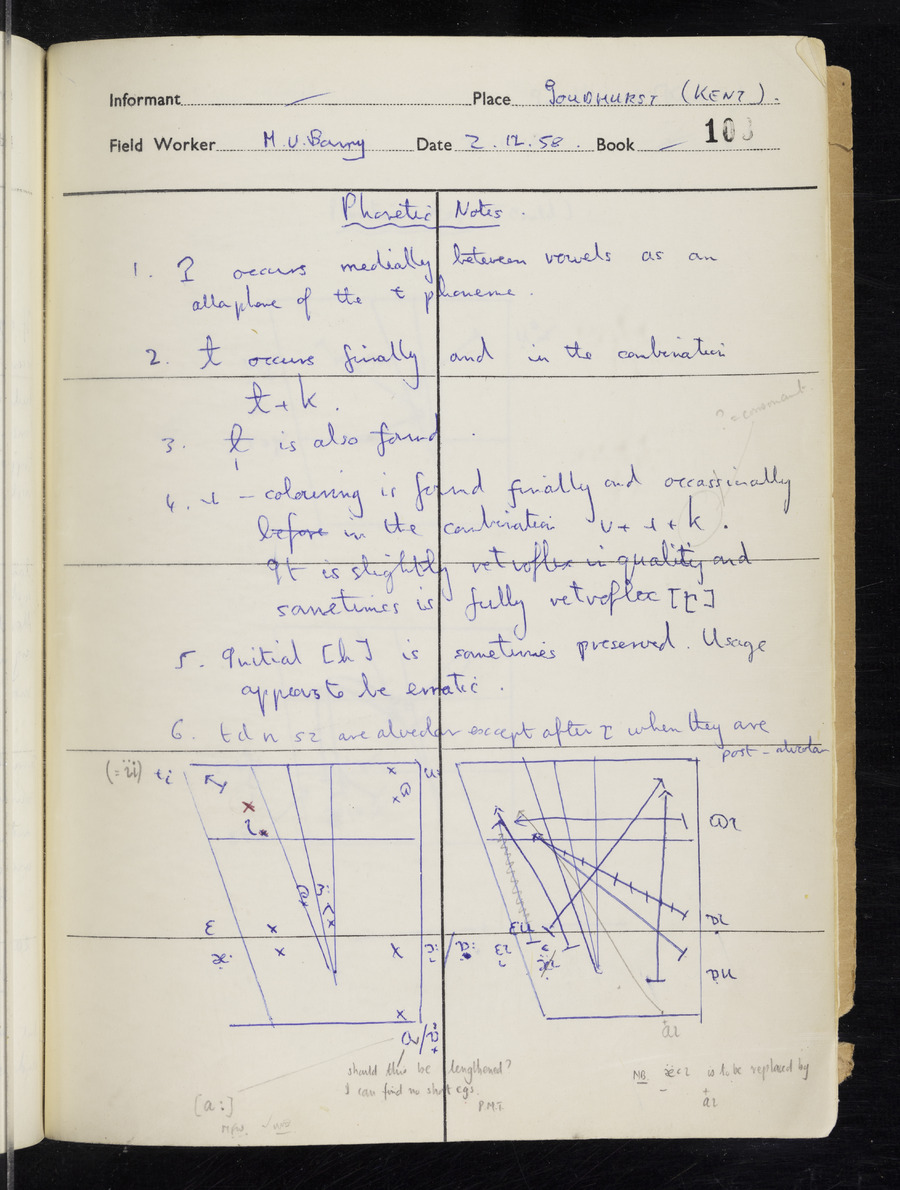 Informant Place GOUDHURST (KENT).
Field Worker M.V. Barry Date 2.12.58. Book 10
Phonetic Notes.
1. ʔ occurs medially between vowels as an
allaphone of the t phoneme.
2. t occurs finally and in the combination
t + k.
3. t is also found.
? consonant
4. ɹ - colouring is found finally and occassinally
before in the combination v + ɹ + k.
It is slightly retroflex in quality and
sometimes is fully retroflex [ɽ]
5. Initial [h] is sometimes preserved. Usage
appears to be erratic.
6. t d n s z are alveolar except after r when they are
post-alveolar
(= ïi) i u:
ɛ
should this be lengthened?
I can find no short egs.
P.M.T.
[a:]
NB. is to be replaced by